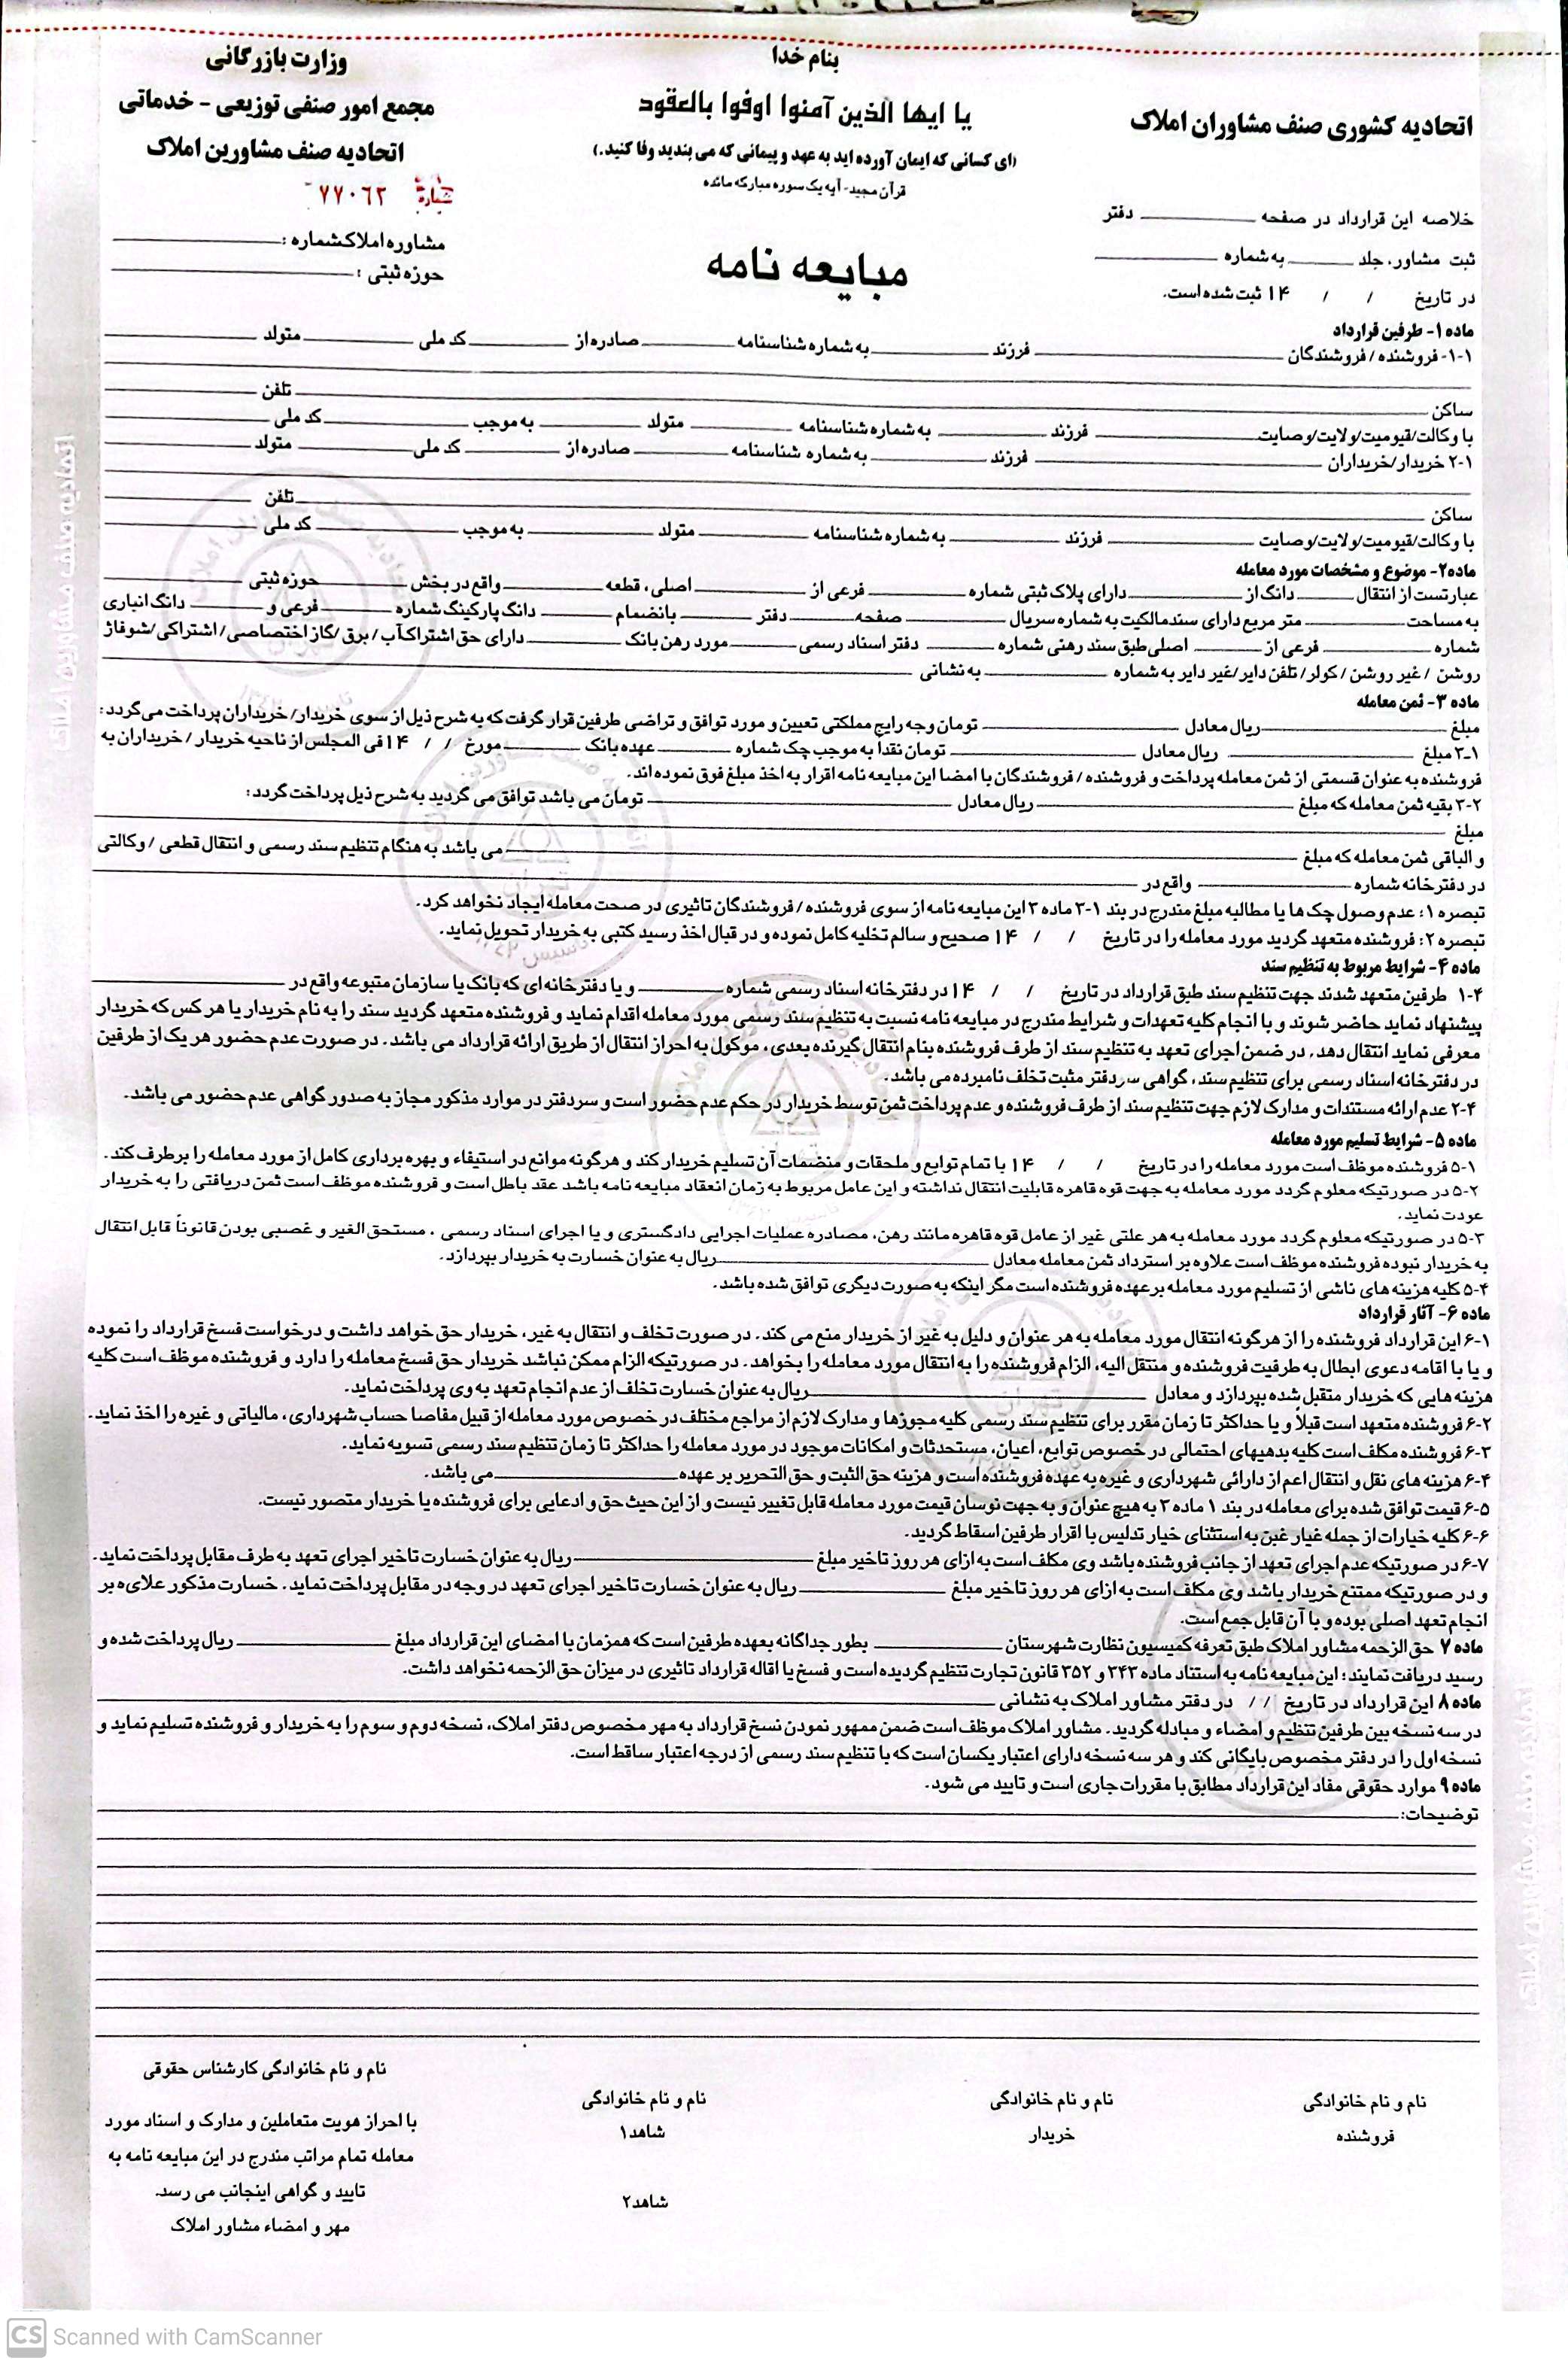 بنام خدا
یا ایها الذین آمنوا اوفوا بالعقود
(ای کسانی که ایمان آورده اید به عهد و پیمانی که می بندید وفا کنید.)
قرآن مجید- آیه یک سوره مبارکه مائده
مبایعه نامه
اتحادیه کشوری صنف مشاوران املاک
خلاصه این قرارداد در صفحه ـــــــ دفتر
ثبت مشاور، جلد ـــــــ به شماره ـــــــ
در تاریخ / / ۱۴ ثبت شده است.
وزارت بازرگانی
مجمع امور صنفی توزیعی - خدماتی
اتحادیه صنف مشاورین املاک
شماره ۷۷۰۶۲
مشاوره املاک شماره : ـــــــ
حوزه ثبتی : ـــــــ
ماده ۱- طرفین قرارداد
۱-۱- فروشنده / فروشندگان ـــــــ فرزند ـــــــ به شماره شناسنامه ـــــــ صادره از ـــــــ کد ملی ـــــــ متولد ـــــــ
ساکن ـــــــ تلفن ـــــــ
با وکالت/قیومیت/ولایت/وصایت ـــــــ فرزند ـــــــ به شماره شناسنامه ـــــــ متولد ـــــــ به موجب ـــــــ کد ملی ـــــــ
۲-۱ خریدار/خریداران ـــــــ فرزند ـــــــ به شماره شناسنامه ـــــــ صادره از ـــــــ کد ملی ـــــــ متولد ـــــــ
ساکن ـــــــ تلفن ـــــــ
با وکالت/قیومیت/ولایت/وصایت ـــــــ فرزند ـــــــ به شماره شناسنامه ـــــــ متولد ـــــــ به موجب ـــــــ کد ملی ـــــــ
ماده۲- موضوع و مشخصات مورد معامله
عبارتست از انتقال ـــــــ دانگ از ـــــــ دارای پلاک ثبتی شماره ـــــــ فرعی از ـــــــ اصلی، قطعه ـــــــ واقع در بخش ـــــــ حوزه ثبتی ـــــــ
به مساحت ـــــــ متر مربع دارای سند مالکیت به شماره سریال ـــــــ صفحه ـــــــ دفتر ـــــــ بانضمام ـــــــ دانگ پارکینگ شماره ـــــــ فرعی و ـــــــ دانگ انباری
شماره ـــــــ فرعی از ـــــــ اصلی طبق سند رهنی شماره ـــــــ دفتر اسناد رسمی ـــــــ مورد رهن بانک ـــــــ دارای حق اشتراک آب / برق /گاز اختصاصی/ اشتراکی/ شوفاژ
روشن / غیر روشن / کولر/ تلفن دایر/غیر دایر به شماره ـــــــ به نشانی ـــــــ
ماده ۳- ثمن معامله
مبلغ ـــــــ ریال معادل ـــــــ تومان وجه رایج مملکتی تعیین و مورد توافق و تراضی طرفین قرار گرفت که به شرح ذیل از سوی خریدار/ خریداران پرداخت می گردد:
۳-۱ مبلغ ـــــــ ریال معادل ـــــــ تومان نقداً به موجب چک شماره ـــــــ عهده بانک ـــــــ مورخ / / ۱۴ فی المجلس از ناحیه خریدار / خریداران به
فروشنده به عنوان قسمتی از ثمن معامله پرداخت و فروشنده / فروشندگان با امضا این مبایعه نامه اقرار به اخذ مبلغ فوق نموده اند.
۳-۲ بقیه ثمن معامله که مبلغ ـــــــ ریال معادل ـــــــ تومان می باشد توافق می گردید به شرح ذیل پرداخت گردد:
مبلغ ـــــــ
و الباقی ثمن معامله که مبلغ ـــــــ می باشد به هنگام تنظیم سند رسمی و انتقال قطعی / وکالتی
در دفترخانه شماره ـــــــ واقع در ـــــــ
تبصره ۱: عدم وصول چک ها یا مطالبه مبلغ مندرج در بند ۱-۳ ماده ۳ این مبایعه نامه از سوی فروشنده / فروشندگان تاثیری در صحت معامله ایجاد نخواهد کرد.
تبصره ۲: فروشنده متعهد گردید مورد معامله را در تاریخ / / ۱۴ صحیح و سالم تخلیه کامل نموده و در قبال اخذ رسید کتبی به خریدار تحویل نماید.
ماده ۴- شرایط مربوط به تنظیم سند
۴-۱ طرفین متعهد شدند جهت تنظیم سند طبق قرارداد در تاریخ / / ۱۴ در دفترخانه اسناد رسمی شماره ـــــــ و یا دفترخانه ای که بانک یا سازمان متبوعه واقع در ـــــــ
پیشنهاد نماید حاضر شوند و با انجام کلیه تعهدات و شرایط مندرج در مبایعه نامه نسبت به تنظیم سند رسمی مورد معامله اقدام نماید و فروشنده متعهد گردید سند را به نام خریدار یا هر کس که خریدار
معرفی نماید انتقال دهد، در ضمن اجرای تعهد به تنظیم سند از طرف فروشنده بنام انتقال گیرنده بعدی، موکول به احراز انتقال از طریق ارائه قرارداد می باشد. در صورت عدم حضور هر یک از طرفین
در دفترخانه اسناد رسمی برای تنظیم سند، گواهی سردفتر مثبت تخلف نامبرده می باشد.
۴-۲ عدم ارائه مستندات و مدارک لازم جهت تنظیم سند از طرف فروشنده و عدم پرداخت ثمن توسط خریدار در حکم عدم حضور است و سردفتر در موارد مذکور مجاز به صدور گواهی عدم حضور می باشد.
ماده ۵- شرایط تسلیم مورد معامله
۵-۱ فروشنده موظف است مورد معامله را در تاریخ / / ۱۴ با تمام توابع و ملحقات و منضمات آن تسلیم خریدار کند و هرگونه موانع در استیفاء و بهره برداری کامل از مورد معامله را برطرف کند.
۵-۲ در صورتیکه معلوم گردد مورد معامله به جهت قوه قاهره قابلیت انتقال نداشته و این عامل مربوط به زمان انعقاد مبایعه نامه باشد عقد باطل است و فروشنده موظف است ثمن دریافتی را به خریدار
عودت نماید.
۵-۳ در صورتیکه معلوم گردد مورد معامله به هر علتی غیر از عامل قوه قاهره مانند رهن، مصادره عملیات اجرایی دادگستری و یا اجرای اسناد رسمی ، مستحق الغیر و غصبی بودن قانوناً قابل انتقال
به خریدار نبوده فروشنده موظف است علاوه بر استرداد ثمن معامله معادل ـــــــ ریال به عنوان خسارت به خریدار بپردازد.
۵-۴ کلیه هزینه های ناشی از تسلیم مورد معامله بر عهده فروشنده است مگر اینکه به صورت دیگری توافق شده باشد.
ماده ۶- آثار قرارداد
۶-۱ این قرارداد فروشنده را از هرگونه انتقال مورد معامله به هر عنوان و دلیل به غیر از خریدار منع می کند. در صورت تخلف و انتقال به غیر، خریدار حق خواهد داشت و درخواست فسخ قرارداد را نموده
و یا با اقامه دعوی ابطال به طرفیت فروشنده و منتقل الیه، الزام فروشنده را به انتقال مورد معامله را بخواهد. در صورتیکه الزام ممکن نباشد خریدار حق فسخ معامله را دارد و فروشنده موظف است کلیه
هزینه هایی که خریدار متقبل شده بپردازد و معادل ـــــــ ریال به عنوان خسارت تخلف از عدم انجام تعهد به وی پرداخت نماید.
۶-۲ فروشنده متعهد است قبلاً و یا حداکثر تا زمان مقرر برای تنظیم سند رسمی کلیه مجوزها و مدارک لازم از مراجع مختلف در خصوص مورد معامله از قبیل مفاصا حساب شهرداری، مالیاتی و غیره را اخذ نماید.
۶-۳ فروشنده مکلف است کلیه بدهیهای احتمالی در خصوص توابع، اعیان، مستحدثات و امکانات موجود در مورد معامله را حداکثر تا زمان تنظیم سند رسمی تسویه نماید.
۶-۴ هزینه های نقل و انتقال اعم از دارائی شهرداری و غیره به عهده فروشنده است و هزینه حق الثبت و حق التحریر بر عهده ـــــــ می باشد.
۶-۵ قیمت توافق شده برای معامله در بند ۱ ماده ۳ به هیچ عنوان و به جهت نوسان قیمت مورد معامله قابل تغییر نیست و از این حیث حق و ادعایی برای فروشنده یا خریدار متصور نیست.
۶-۶ کلیه خیارات از جمله غیار غبن به استثنای خیار تدلیس با اقرار طرفین اسقاط گردید.
۶-۷ در صورتیکه عدم اجرای تعهد از جانب فروشنده باشد وی مکلف است به ازای هر روز تاخیر مبلغ ـــــــ ریال به عنوان خسارت تاخیر اجرای تعهد به طرف مقابل پرداخت نماید.
و در صورتیکه ممتنع خریدار باشد وی مکلف است به ازای هر روز تاخیر مبلغ ـــــــ ریال به عنوان خسارت تاخیر اجرای تعهد در وجه در مقابل پرداخت نماید. خسارت مذکور علاوه بر
انجام تعهد اصلی بوده و با آن قابل جمع است.
ماده ۷ حق الزحمه مشاور املاک طبق تعرفه کمیسیون نظارت شهرستان ـــــــ بطور جداگانه بعهده طرفین است که همزمان با امضای این قرارداد مبلغ ـــــــ ریال پرداخت شده و
رسید دریافت نمایند؛ این مبایعه نامه به استناد ماده ۳۴۳ و ۳۵۲ قانون تجارت تنظیم گردیده است و فسخ یا اقاله قرارداد تاثیری در میزان حق الزحمه نخواهد داشت.
ماده ۸ این قرارداد در تاریخ / / در دفتر مشاور املاک به نشانی ـــــــ
در سه نسخه بین طرفین تنظیم و امضاء و مبادله گردید. مشاور املاک موظف است ضمن ممهور نمودن نسخ قرارداد به مهر مخصوص دفتر املاک، نسخه دوم و سوم را به خریدار و فروشنده تسلیم نماید و
نسخه اول را در دفتر مخصوص بایگانی کند و هر سه نسخه دارای اعتبار یکسان است که با تنظیم سند رسمی از درجه اعتبار ساقط است.
ماده ۹ موارد حقوقی مفاد این قرارداد مطابق با مقررات جاری است و تایید می شود.
توضیحات: ـــــــ
نام و نام خانوادگی
فروشنده
نام و نام خانوادگی
خریدار
نام و نام خانوادگی
شاهد۱
شاهد۲
نام و نام خانوادگی کارشناس حقوقی
با احراز هویت متعاملین و مدارک و اسناد مورد
معامله تمام مراتب مندرج در این مبایعه نامه به
تایید و گواهی اینجانب می رسد.
مهر و امضاء مشاور املاک
اتحادیه صنف مشاورین املاک
CS Scanned with CamScanner